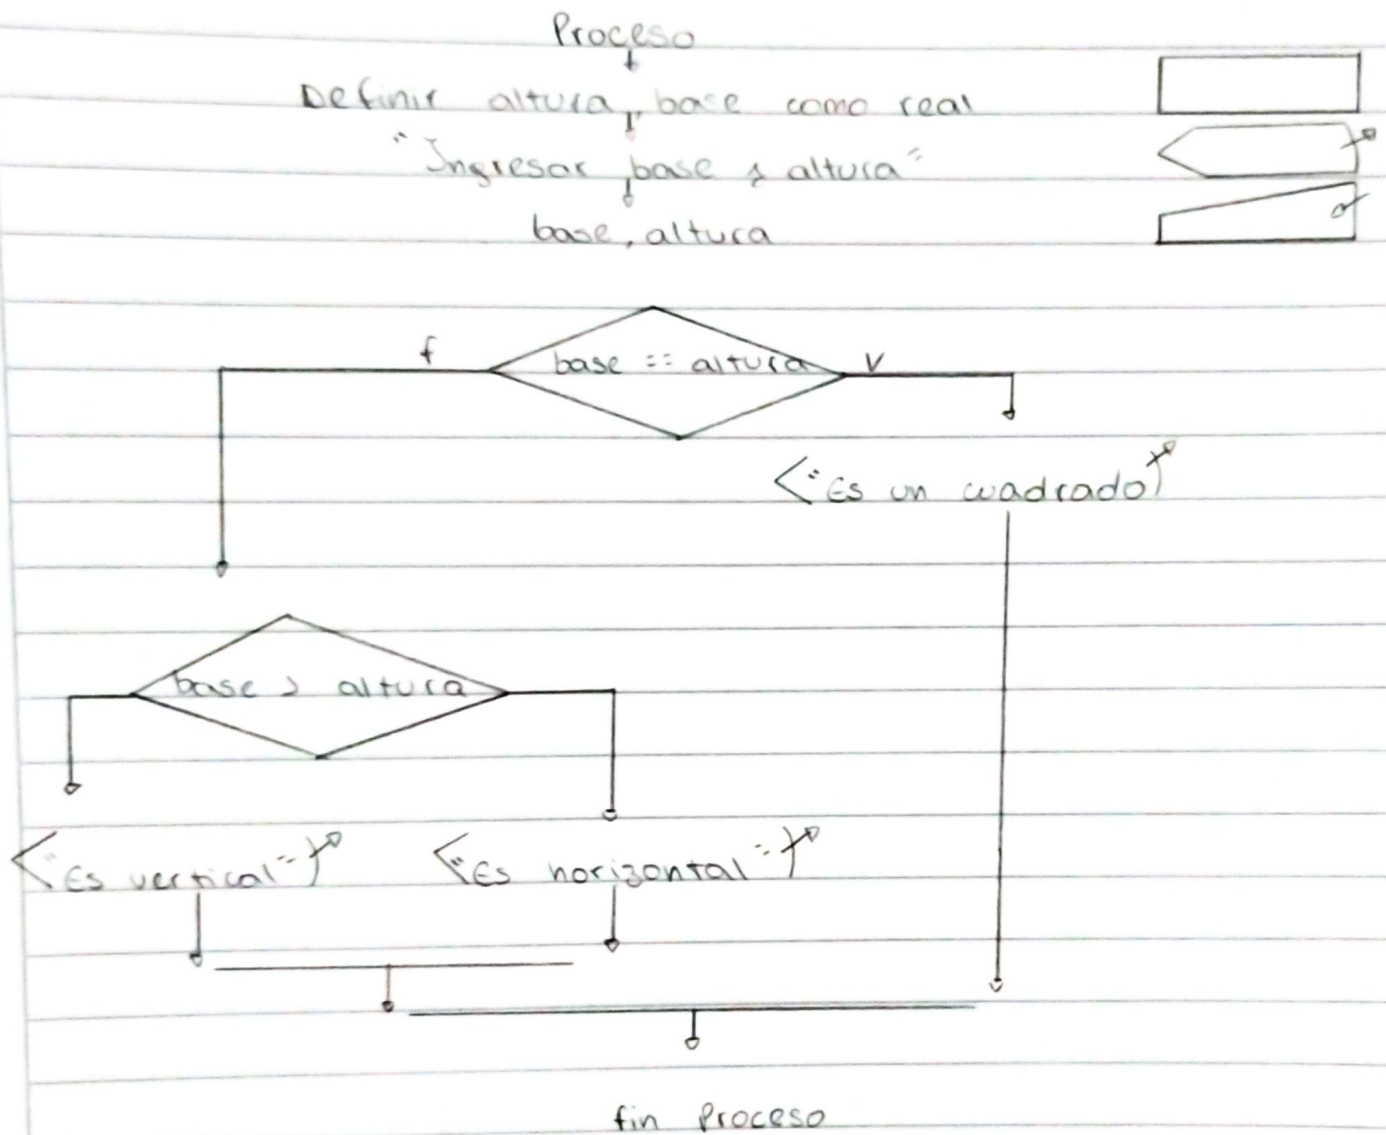 Proceso
Definir altura, base como real
"Ingresar base y altura"
base, altura
f
base == altura
V
"Es un cuadrado"
base > altura
"Es vertical"
"Es horizontal"
fin Proceso